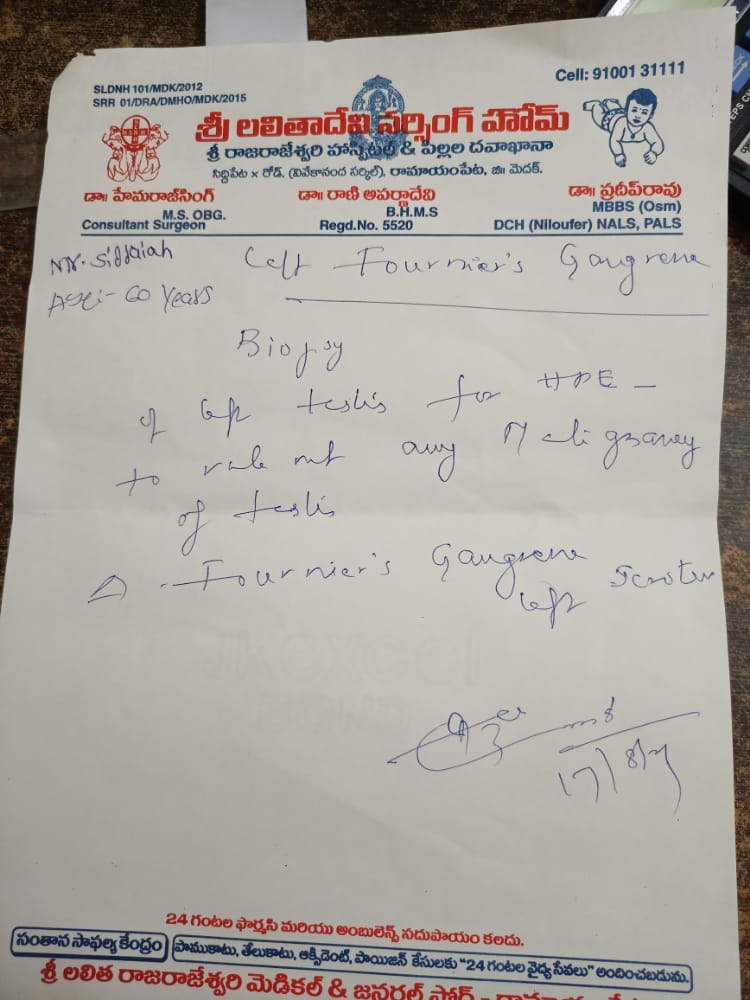 SLDNH 101/MDK/2012
SRR 01/DRA/DMHO/MDK/2015
Cell: 91001 31111
శ్రీ లలితాదేవి నర్సింగ్ హోమ్
శ్రీ రాజరాజేశ్వరి హాస్పిటల్ & పిల్లల దవాఖానా
సిద్దిపేట x రోడ్, (వివేకానంద సర్కిల్), రామాయంపేట, జిII మెదక్.
డాII హేమరాజ్‌సింగ్
M.S. OBG.
Consultant Surgeon
డాII రాణి అపర్ణాదేవి
B.H.M.S
Regd.No. 5520
డాII ప్రదీప్‌రావు
MBBS (Osm)
DCH (Niloufer) NALS, PALS
Mr. Siddaiah
Age:- 60 Years
Left Fournier's Gangrene
Biopsy
of left testis for HPE -
to rule out any Malignancy
of testis
Δ. Fournier's Gangrene
left Scrotum
17/8/
24 గంటల ఫార్మసి మరియు అంబులెన్స్ సదుపాయం కలదు.
సంతాన సాఫల్య కేంద్రం
పాముకాటు, తేలుకాటు, ఆక్సిడెంట్, పాయిజన్ కేసులకు "24 గంటల వైద్య సేవలు" అందించబడును.
శ్రీ లలిత రాజరాజేశ్వరి మెడికల్ & జనరల్ స్టోర్ -